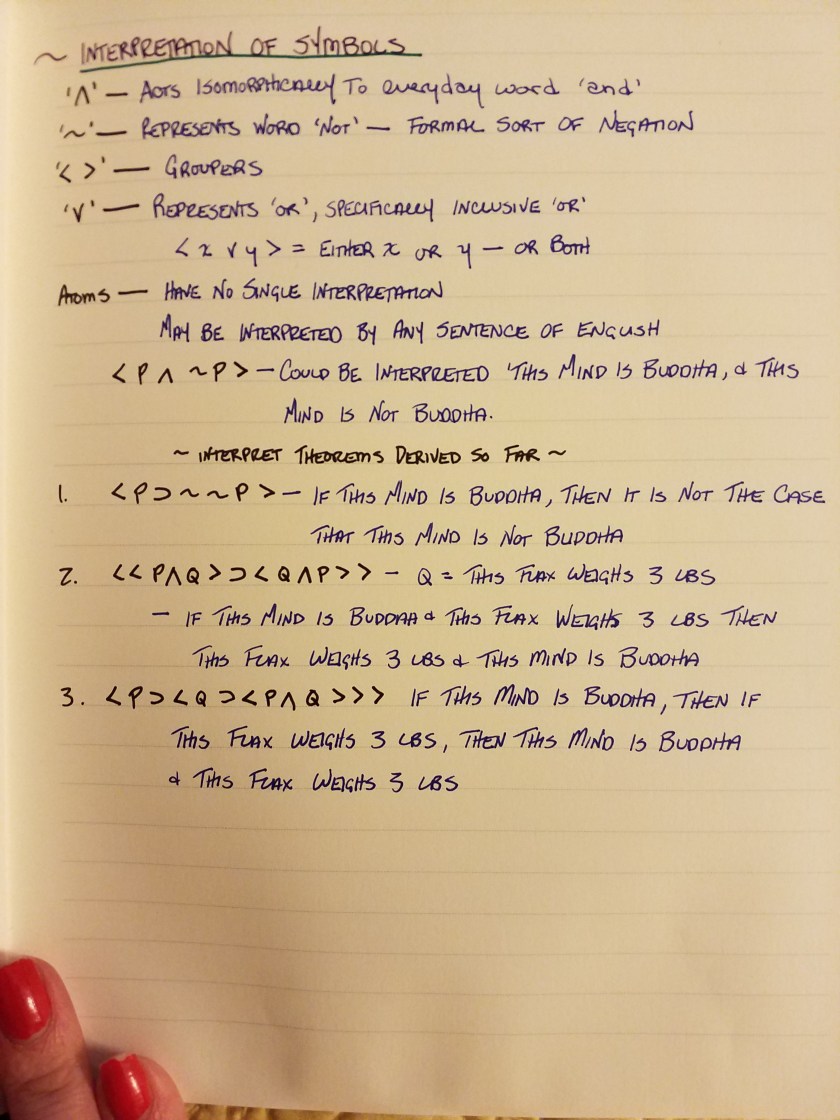 ~ INTERPRETATION OF SYMBOLS
'∧' — ACTS ISOMORPHICALLY TO everyday word 'and'
'~' — REPRESENTS WORD 'NOT' — FORMAL SORT OF NEGATION
'< >' — GROUPERS
'∨' — REPRESENTS 'OR', SPECIFICALLY INCLUSIVE 'OR'
< x ∨ y > = EITHER x OR y — OR BOTH
ATOMS — HAVE NO SINGLE INTERPRETATION
MAY BE INTERPRETED BY ANY SENTENCE OF ENGLISH
< P ∧ ~P > — COULD BE INTERPRETED 'THIS MIND IS BUDDHA, & THIS
MIND IS NOT BUDDHA.
~ INTERPRET THEOREMS DERIVED SO FAR ~
1. < P ⊃ ~ ~ P > — IF THIS MIND IS BUDDHA, THEN IT IS NOT THE CASE
THAT THIS MIND IS NOT BUDDHA
2. < < P ∧ Q > ⊃ < Q ∧ P > > — Q = THIS FLAX WEIGHS 3 LBS
— IF THIS MIND IS BUDDHA & THIS FLAX WEIGHS 3 LBS THEN
THIS FLAX WEIGHS 3 LBS & THIS MIND IS BUDDHA
3. < P ⊃ < Q ⊃ < P ∧ Q > > > IF THIS MIND IS BUDDHA, THEN IF
THIS FLAX WEIGHS 3 LBS, THEN THIS MIND IS BUDDHA
& THIS FLAX WEIGHS 3 LBS